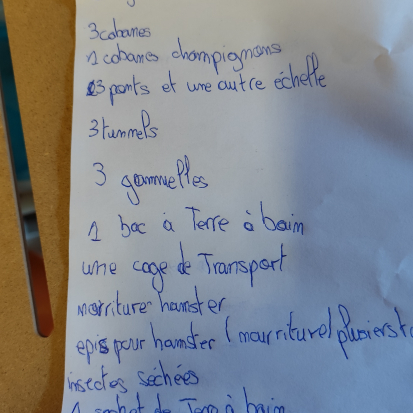 3 cabanes
1 cabanes champignons
3 ponts et une autre échelle
3 tunnels
3 gamelles
1 bac à Terre à bain
une cage de Transport
nourriture hamster
epis pour hamster (nourriture) plusiers
insectes séchées
1 sachet de Terre à bain